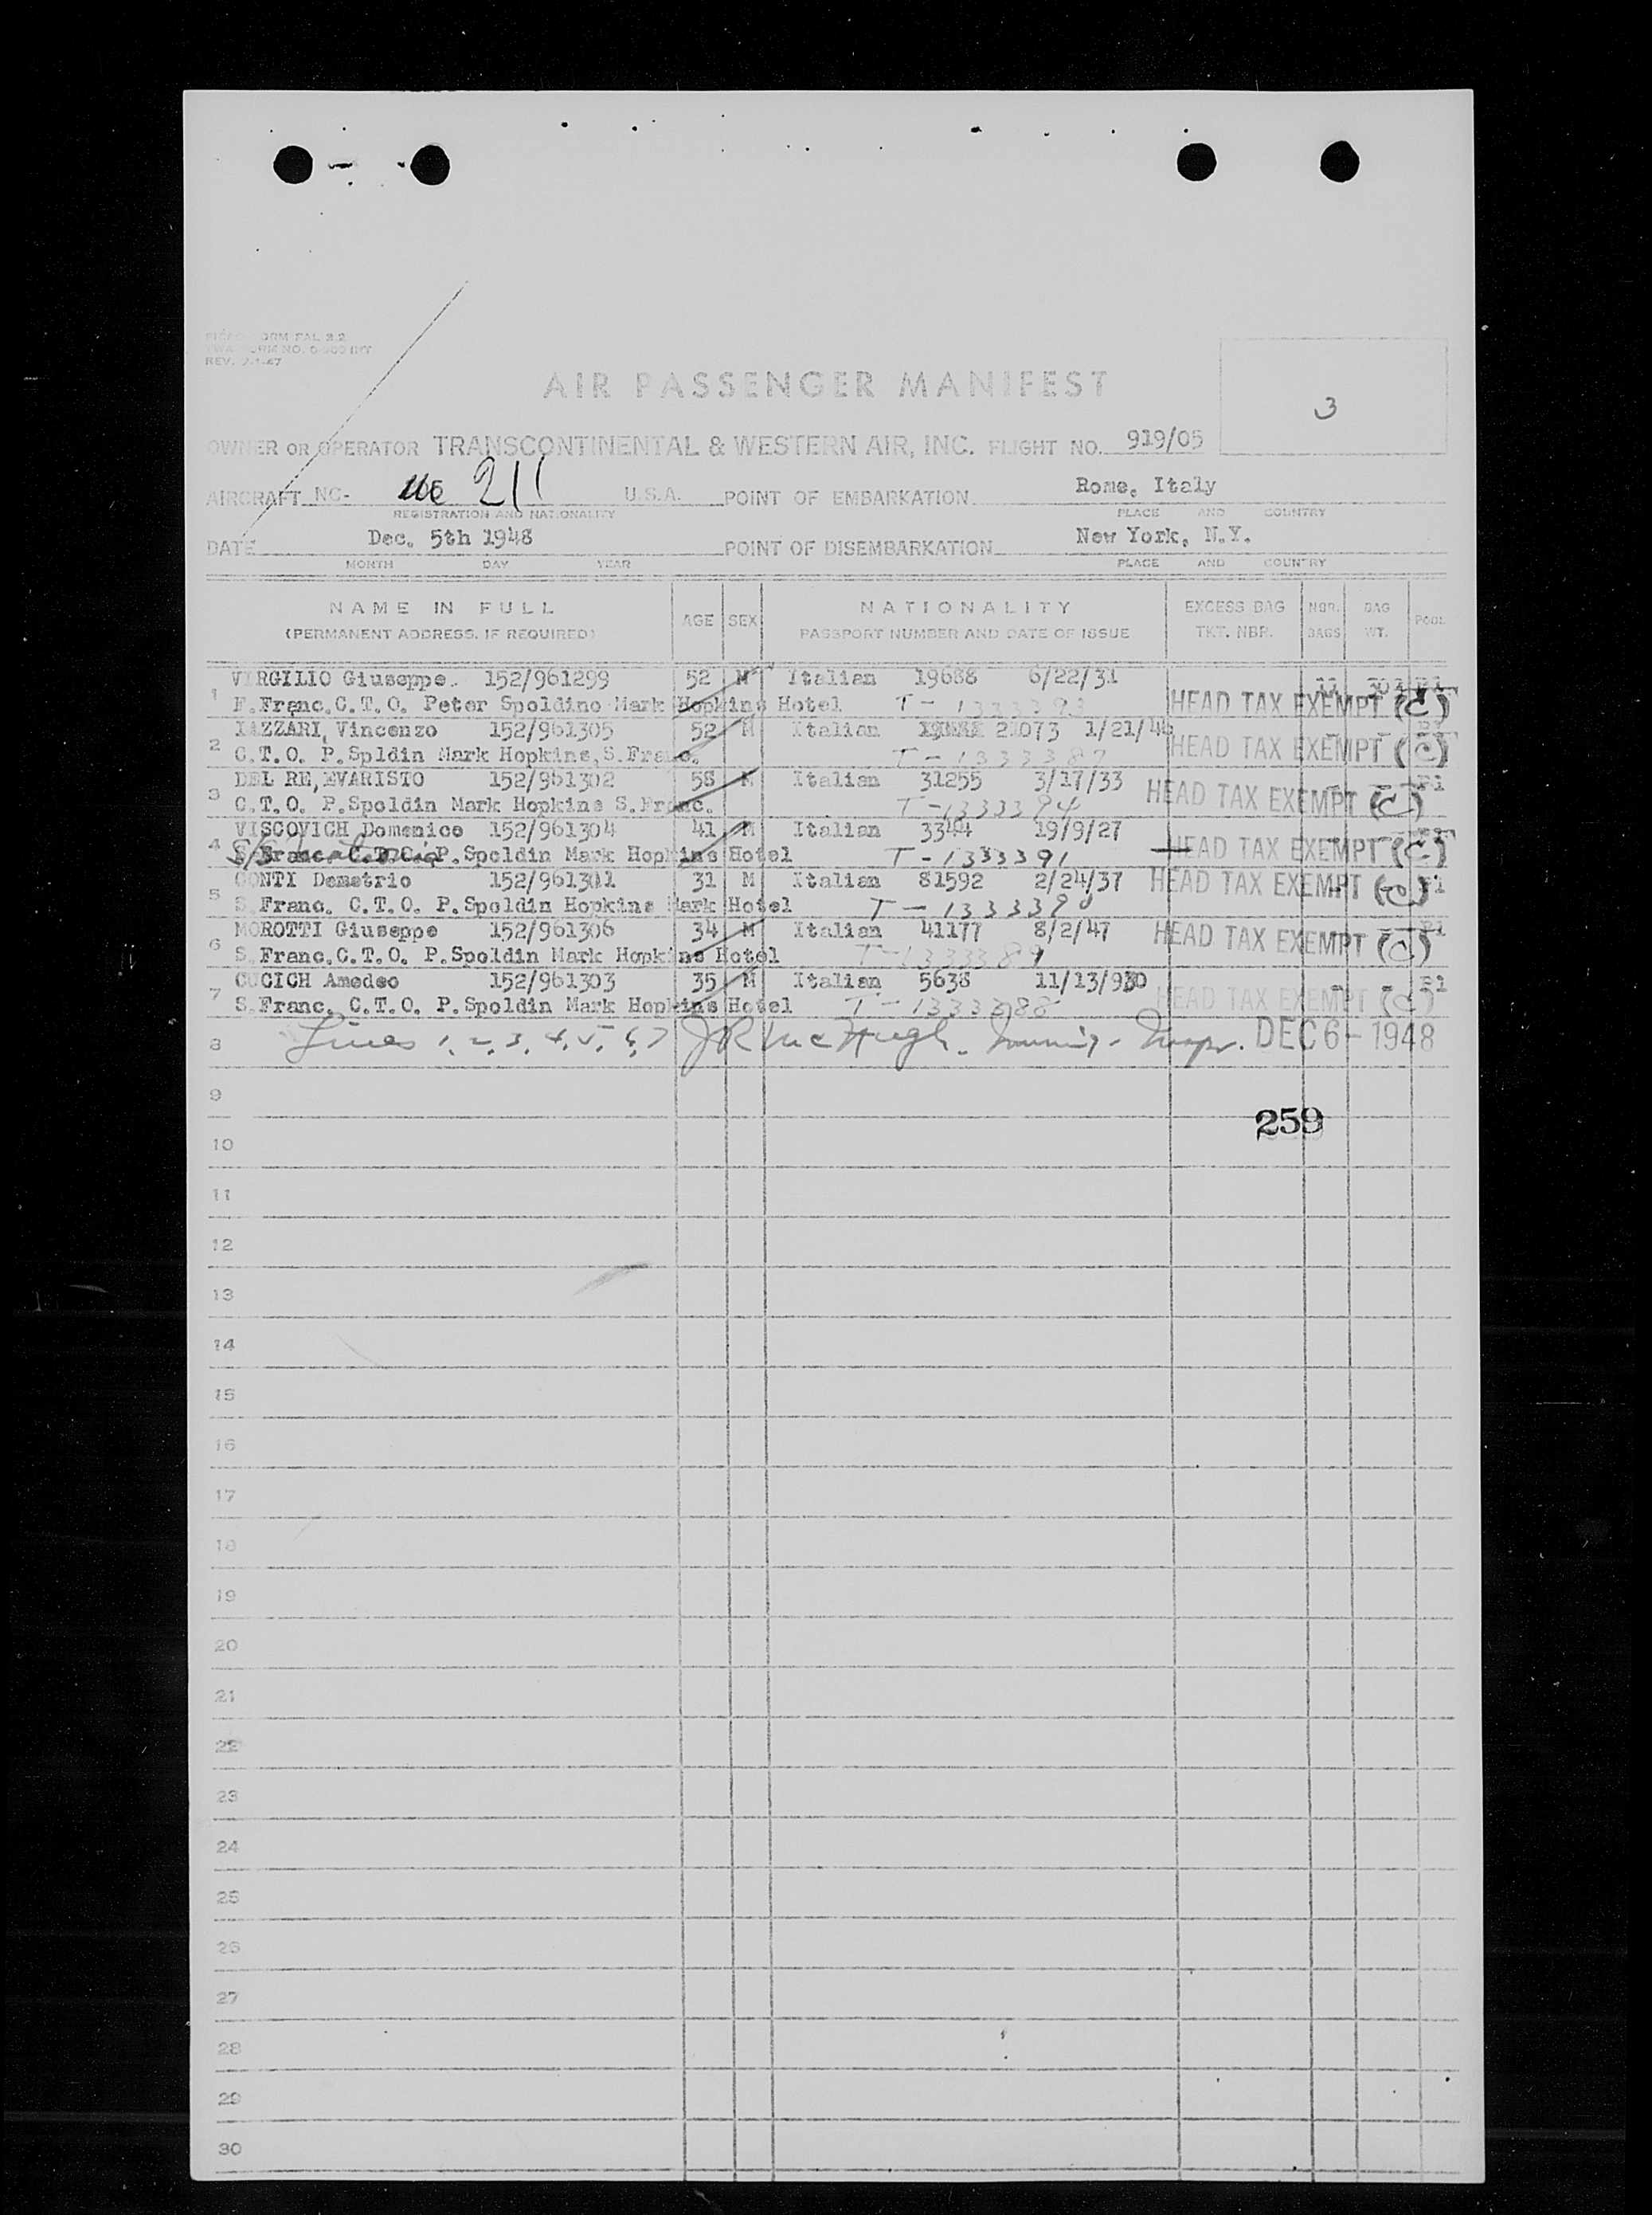 REV. 7-1-47
AIR PASSENGER MANIFEST
3
OWNER OR OPERATOR TRANSCONTINENTAL & WESTERN AIR, INC. FLIGHT NO. 919/05
AIRCRAFT NC- 211 U.S.A. POINT OF EMBARKATION Rome, Italy
REGISTRATION AND NATIONALITY PLACE AND COUNTRY
DATE Dec. 5th 1948 POINT OF DISEMBARKATION New York, N.Y.
MONTH DAY YEAR PLACE AND COUNTRY
NAME IN FULL AGE SEX NATIONALITY EXCESS BAG NBR. BAG POOL
(PERMANENT ADDRESS, IF REQUIRED) PASSPORT NUMBER AND DATE OF ISSUE TKT. NBR. BAGS WT.
VIRGILIO Giuseppe. 152/961299 52 M Italian 19688 6/22/31
1 F.Franc.C.T.O. Peter Spoldino Mark Hopkins Hotel HEAD TAX EXEMPT (C)
Vincenzo 152/961305 52 M Italian 21073
2 C.T.O. P.Spldin Mark Hopkins,S.Franc. HEAD TAX EXEMPT (C)
DEL RE,EVARISTO 152/961302 58 M Italian 31255 3/17/33
3 C.T.O. P.Spoldin Mark Hopkins S.Franc. T-1333394 HEAD TAX EXEMPT (C)
VISCOVICH Domenico 152/961304 41 M Italian 3344 19/9/27
4 P.Spoldin Mark Hopkins Hotel T-1333391 HEAD TAX EXEMPT (C)
CONTI Demetrio 152/961301 31 M Italian 81592 2/24/37 HEAD TAX EXEMPT (C)
5 S.Franc. C.T.O. P.Spoldin Hopkins Mark Hotel T-1333390
MOROTTI Giuseppe 152/961306 34 M Italian 41177 8/2/47 HEAD TAX EXEMPT (C)
6 S.Franc.C.T.O. P.Spoldin Mark Hopkins Hotel T-1333389
CUCICH Amedeo 152/961303 35 M Italian 5638 11/13/930
7 S.Franc. C.T.O. P.Spoldin Mark Hopkins Hotel T-1333388 HEAD TAX EXEMPT (C)
8 Lines 1, 2, 3, 4, 5, 6, 7 JR McHugh DEC 6 - 1948
9
259
10
11
12
13
14
15
16
17
18
19
20
21
22
23
24
25
26
27
28
29
30